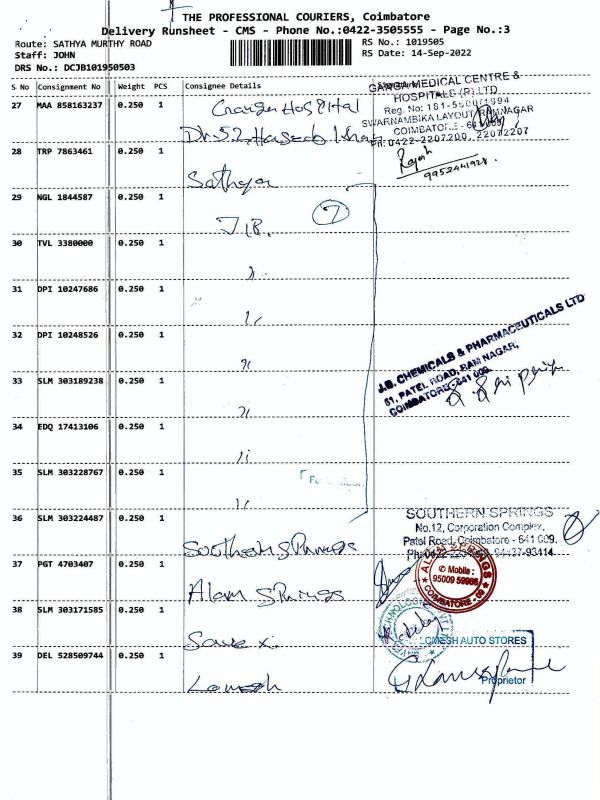 THE PROFESSIONAL COURIERS, Coimbatore
Delivery Runsheet - CMS - Phone No.:0422-3505555 - Page No.:3
Route: SATHYA MURTHY ROAD
RS No.: 1019505
Staff: JOHN
RS Date: 14-Sep-2022
DRS No.: DCJB101950503
S No Consignment No Weight PCS Consignee Details
GANGA MEDICAL CENTRE &
HOSPITALS (P) LTD
SWARNAMBIKA LAYOUT, RAMNAGAR
COIMBATORE
Ph:0422-2207200, 22072207
27 MAA 858163237 0.250 1
Hospital
Rajesh
9952441928.
28 TRP 7863461 0.250 1
Sathya
29 NGL 1844587 0.250 1
7
J.B.
30 TVL 3380000 0.250 1
31 DPI 10247686 0.250 1
32 DPI 10248526 0.250 1
J.B. CHEMICALS & PHARMACEUTICALS LTD
61, PATEL ROAD, RAM NAGAR,
COIMBATORE-641 009.
33 SLM 303189238 0.250 1
34 EDQ 17413106 0.250 1
35 SLM 303228767 0.250 1
36 SLM 303224487 0.250 1
Southern Springs
SOUTHERN SPRINGS
No.12, Corporation Complex,
Patel Road, Coimbatore - 641 009.
94437-93414
37 PGT 4703407 0.250 1
Alam Springs
ALAM SPRINGS
Mobile :
95009 59966
COIMBATORE - 09
38 SLM 303171585 0.250 1
39 DEL 528509744 0.250 1
Lomesh
LOMESH AUTO STORES
Proprietor